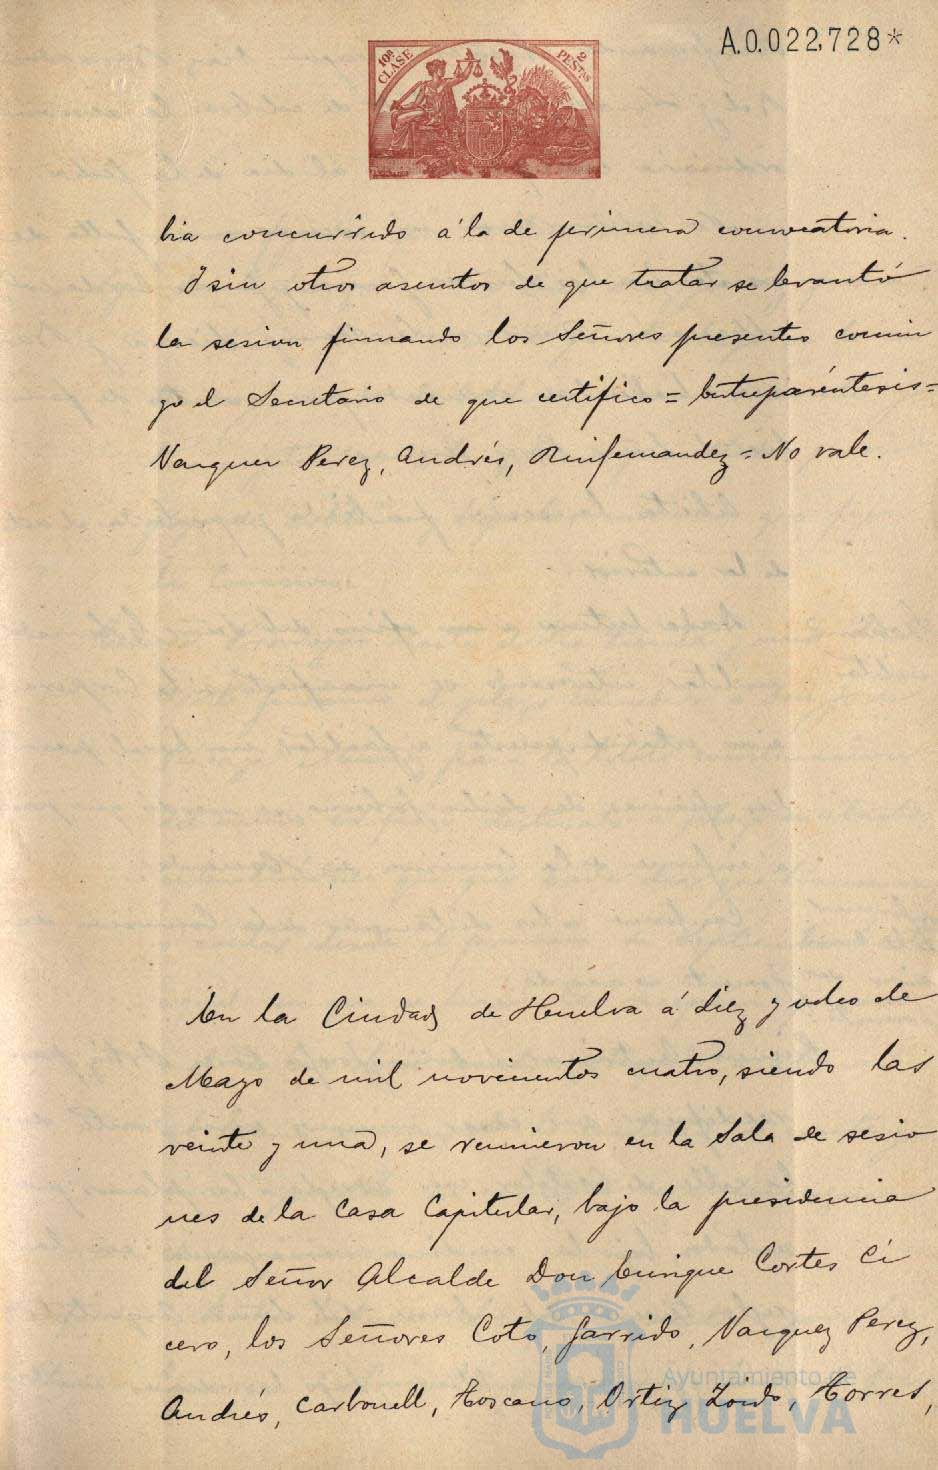 A.0.022,728*
10ª CLASE
2 PESTAS
bia concurrido á la de primera convocatoria.
Y sin otros asuntos de que tratar se levantó
la sesion firmando los Señores presentes conmi
go el Secretario de que certifico = Entreparéntesis =
Vazquez Perez, Andrés, Ruifernandez = No vale.
En la Ciudad de Huelva á diez y ocho de
Mayo de mil novecientos cuatro, siendo las
veinte y una, se reunieron en la Sala de sesio
nes de la Casa Capitular, bajo la presidencia
del Señor Alcalde Don Enrique Cortes Ci
cero, los Señores Coto, Garrido, Vazquez Perez,
Andrés, Carbonell, Toscano, Ortiz Zoido, Torres,
Ayuntamiento de
HUELVA